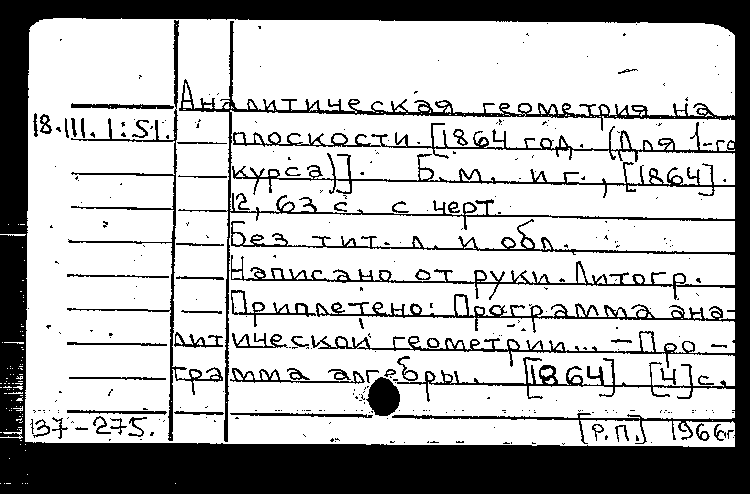 Аналитическая геометрия на
18.III.1:51.
плоскости. [1864 год. (Для 1-го
курса)]. Б. м. и г., [1864].
12, 63 с. с черт.
Без тит. л. и обл.
Написано от руки. Литогр.
Приплетено: Программа ана-
литической геометрии... — Про-
грамма алгебры. [1864]. [4] с.
137-275. [Р.П.] 1966г